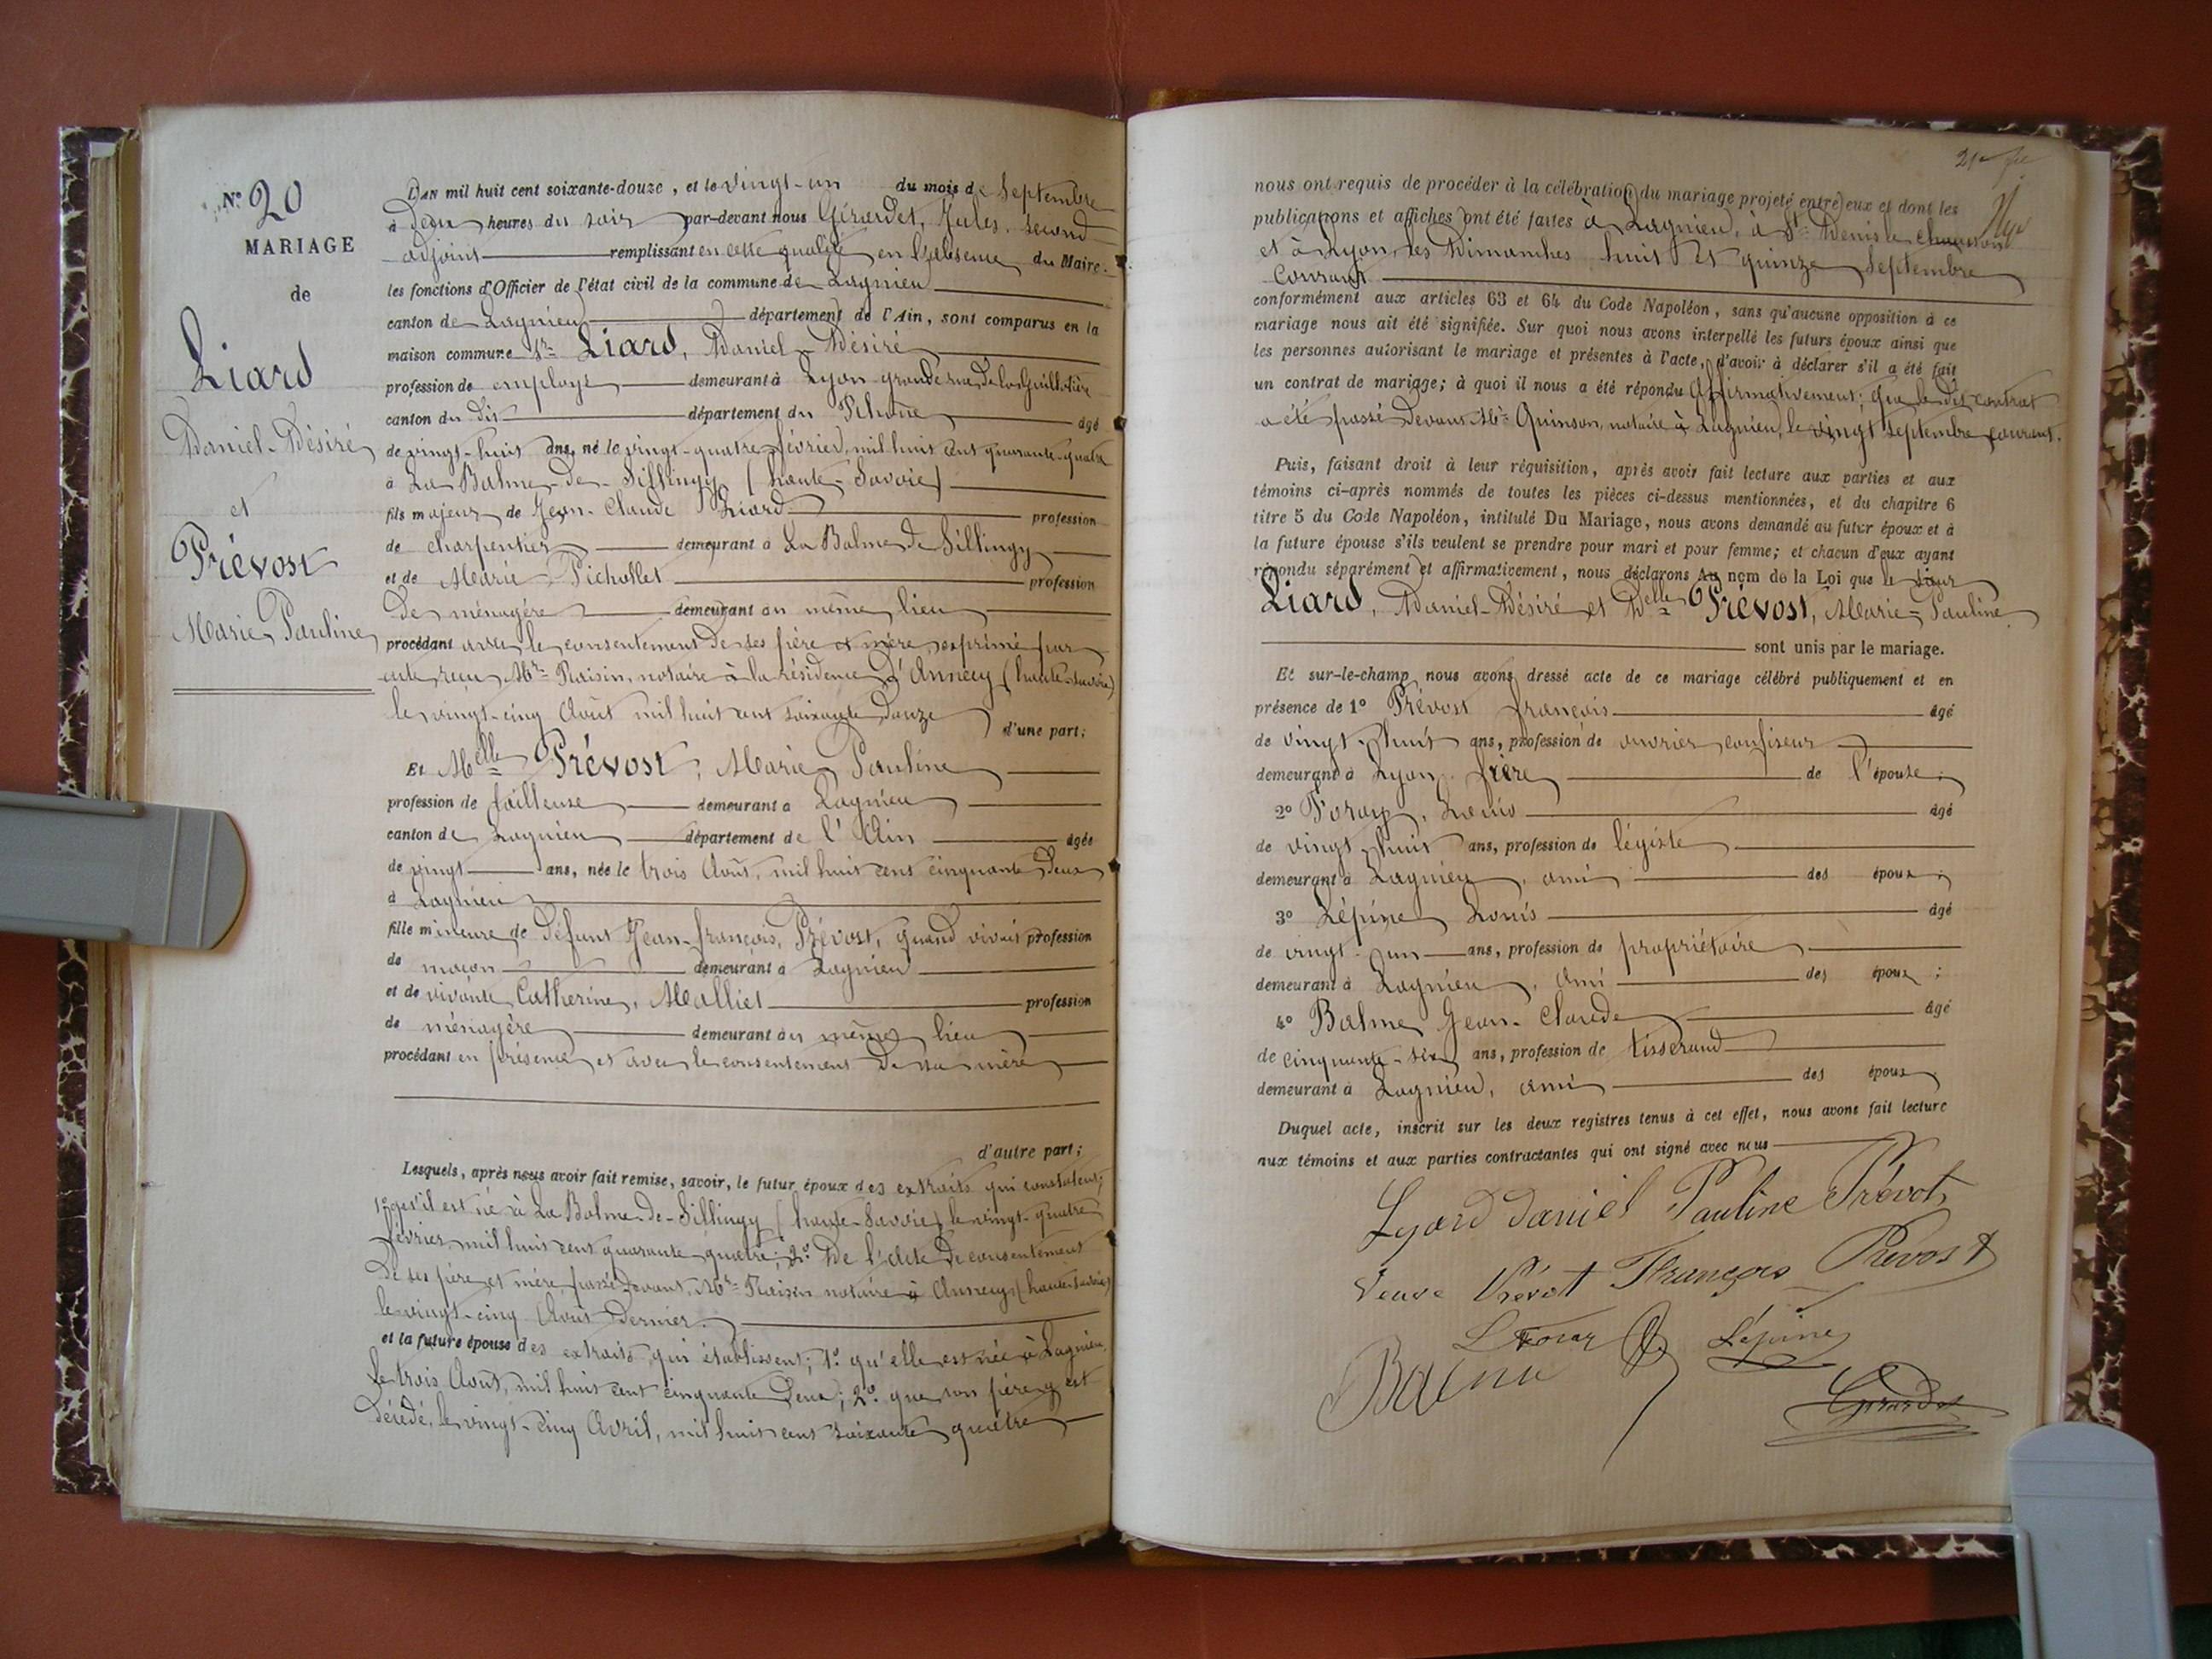 N° 20
MARIAGE
de
Liard
Daniel-Désiré
et
Prévost
Marie Pauline
L'AN mil huit cent soixante-douze, et le vingt-un du mois de Septembre
à deux heures du soir par-devant nous Gérardet, Jules, second
adjoint remplissant en cette qualité en l'absence du Maire.
les fonctions d'Officier de l'état civil de la commune de Lagnieu
canton de Lagnieu département de l'Ain, sont comparus en la
maison commune Sr Liard, Daniel-Désiré
profession de employé demeurant à Lyon grande rue de la Guillotière
canton du dit département du Rhône âgé
de vingt-huit ans, né le vingt-quatre février, mil huit cent quarante-quatre
à La Balme-de-Sillingy (haute-Savoie)
fils majeur de Jean-Claude Liard profession
de charpentier demeurant à La Balme de Sillingy
et de Marie Pichollet profession
de ménagère demeurant au même lieu
procédant avec le consentement de ses père et mère, exprimé par
acte reçu Mr Raisin, notaire à la résidence d'Annecy (haute-savoie)
le vingt-cinq Août mil huit cent soixante douze d'une part;
Et Melle Prévost, Marie Pauline
profession de tailleuse demeurant à Lagnieu
canton de Lagnieu département de l'Ain âgée
de vingt ans, née le trois Août, mil huit cent cinquante deux
à Lagnieu
fille mineure de défunt Jean-françois, Prévost, quand vivait profession
de maçon demeurant à Lagnieu
et de vivante Catherine, Malliet profession
de ménagère demeurant au même lieu
procédant en présence et avec le consentement de sa mère
d'autre part;
Lesquels, après nous avoir fait remise, savoir, le futur époux des extraits qui constatent;
1° qu'il est né à La Balme-de-Sillingy (haute-Savoie) le vingt-quatre
février mil huit cent quarante quatre; 2° de l'acte de consentement
de ses père et mère, passé devant, Mr Raisin notaire à Annecy (haute-savoie)
le vingt-cinq Août dernier.
et la future épouse des extraits qui établissent; 1° qu'elle est née à Lagnieu,
le trois Août, mil huit cent cinquante deux; 2° que son père y est
décédé, le vingt-cinq Avril, mil huit cent soixante quatre
nous ont requis de procéder à la célébration du mariage projeté entre eux et dont les
publications et affiches ont été faites à Lagnieu, à St Denis le chausson
et à Lyon, les Dimanches huit et quinze Septembre
Courant
conformément aux articles 63 et 64 du Code Napoléon, sans qu'aucune opposition à ce
mariage nous ait été signifiée. Sur quoi nous avons interpellé les futurs époux ainsi que
les personnes autorisant le mariage et présentes à l'acte, d'avoir à déclarer s'il a été fait
un contrat de mariage; à quoi il nous a été répondu Affirmativement; que le dit contrat
a été passé devant Me Quinson, notaire à Lagnieu, le vingt septembre courant.
Puis, faisant droit à leur réquisition, après avoir fait lecture aux parties et aux
témoins ci-après nommés de toutes les pièces ci-dessus mentionnées, et du chapitre 6
titre 5 du Code Napoléon, intitulé Du Mariage, nous avons demandé au futur époux et à
la future épouse s'ils veulent se prendre pour mari et pour femme; et chacun d'eux ayant
répondu séparément et affirmativement, nous déclarons Au nom de la Loi que le sieur
Liard, Daniel-Désiré et Delle Prévost, Marie-Pauline
sont unis par le mariage.
Et sur-le-champ nous avons dressé acte de ce mariage célébré publiquement et en
présence de 1° Prévost françois âgé
de vingt-huit ans, profession de ouvrier confiseur
demeurant à Lyon frère de l'épouse;
2° Louis âgé
de vingt huit ans, profession de légiste
demeurant à Lagnieu, ami des époux;
3° Lépine Louis âgé
de vingt un ans, profession de propriétaire
demeurant à Lagnieu, ami des époux;
4° Balme Jean-Claude âgé
de cinquante-six ans, profession de tisserand
demeurant à Lagnieu, ami des époux
Duquel acte, inscrit sur les deux registres tenus à cet effet, nous avons fait lecture
aux témoins et aux parties contractantes qui ont signé avec nous
Lyard daniel Pauline Prévot
Veuve Prévot François Prevost
Lépine
Balme
Gérardet